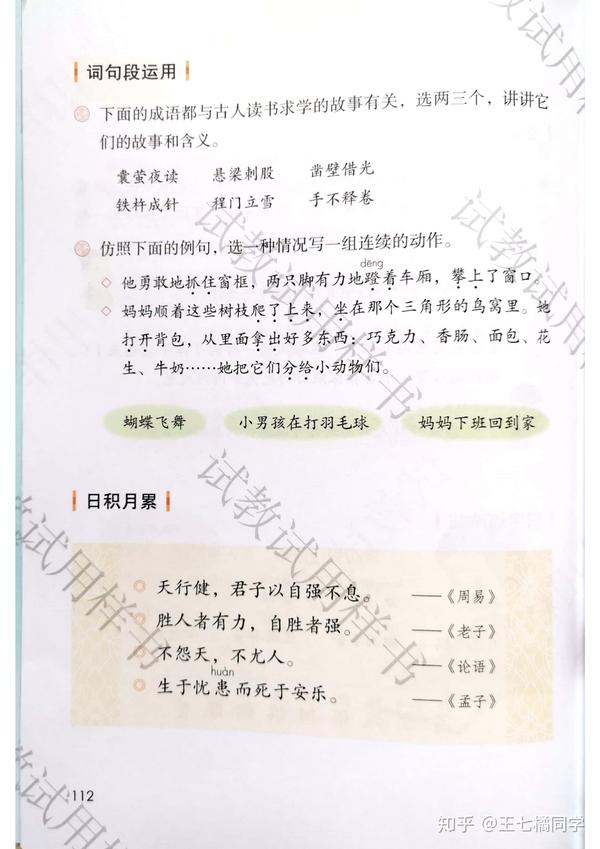 词句段运用
下面的成语都与古人读书求学的故事有关，选两三个，讲讲它
们的故事和含义。
囊萤夜读 悬梁刺股 凿壁借光
铁杵成针 程门立雪 手不释卷
仿照下面的例句，选一种情况写一组连续的动作。
dēng
他勇敢地抓住窗框，两只脚有力地蹬着车厢，攀上了窗口。
妈妈顺着这些树枝爬了上来，坐在那个三角形的鸟窝里。她
打开背包，从里面拿出好多东西：巧克力、香肠、面包、花
生、牛奶……她把它们分给小动物们。
蝴蝶飞舞 小男孩在打羽毛球 妈妈下班回到家
日积月累
天行健，君子以自强不息。 ——《周易》
胜人者有力，自胜者强。 ——《老子》
不怨天，不尤人。 ——《论语》
huàn
生于忧患而死于安乐。 ——《孟子》
112
试教试用样书
试教试用样书
试教试用样书
试教试用样书
试教试用样书
知乎 @王七橘同学